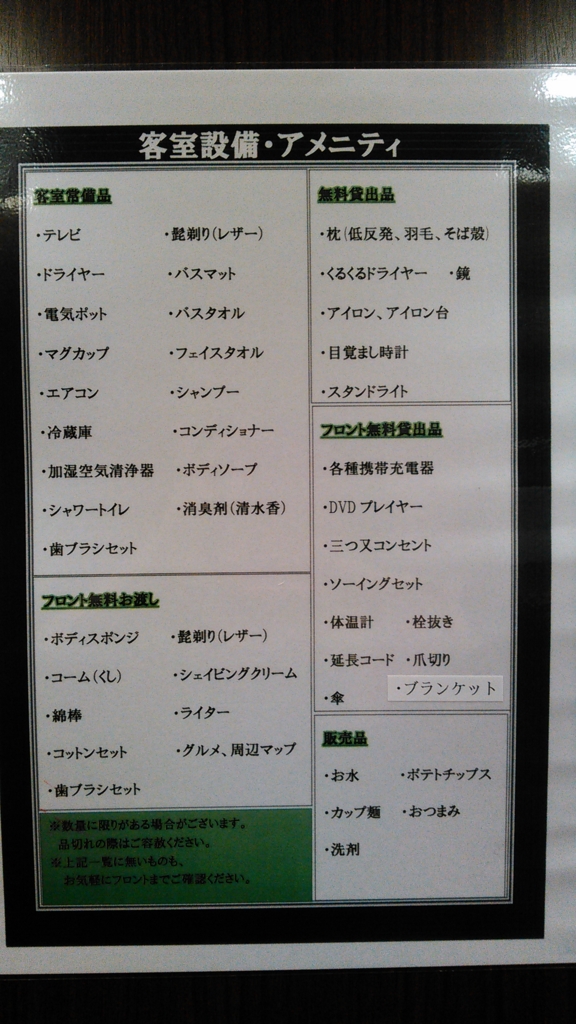 客室設備・アメニティ
客室常備品
・テレビ ・髭剃り(レザー)
・ドライヤー ・バスマット
・電気ポット ・バスタオル
・マグカップ ・フェイスタオル
・エアコン ・シャンプー
・冷蔵庫 ・コンディショナー
・加湿空気清浄器 ・ボディソープ
・シャワートイレ ・消臭剤(清水香)
・歯ブラシセット
フロント無料お渡し
・ボディスポンジ ・髭剃り(レザー)
・コーム(くし) ・シェイビングクリーム
・綿棒 ・ライター
・コットンセット ・グルメ、周辺マップ
・歯ブラシセット
※数量に限りがある場合がございます。
品切れの際はご容赦ください。
※上記一覧に無いものも、
お気軽にフロントまでご確認ください。
無料貸出品
・枕(低反発、羽毛、そば殻)
・くるくるドライヤー ・鏡
・アイロン、アイロン台
・目覚まし時計
・スタンドライト
フロント無料貸出品
・各種携帯充電器
・DVD プレイヤー
・三つ又コンセント
・ソーイングセット
・体温計 ・栓抜き
・延長コード ・爪切り
・傘 ・ブランケット
販売品
・お水 ・ポテトチップス
・カップ麺 ・おつまみ
・洗剤